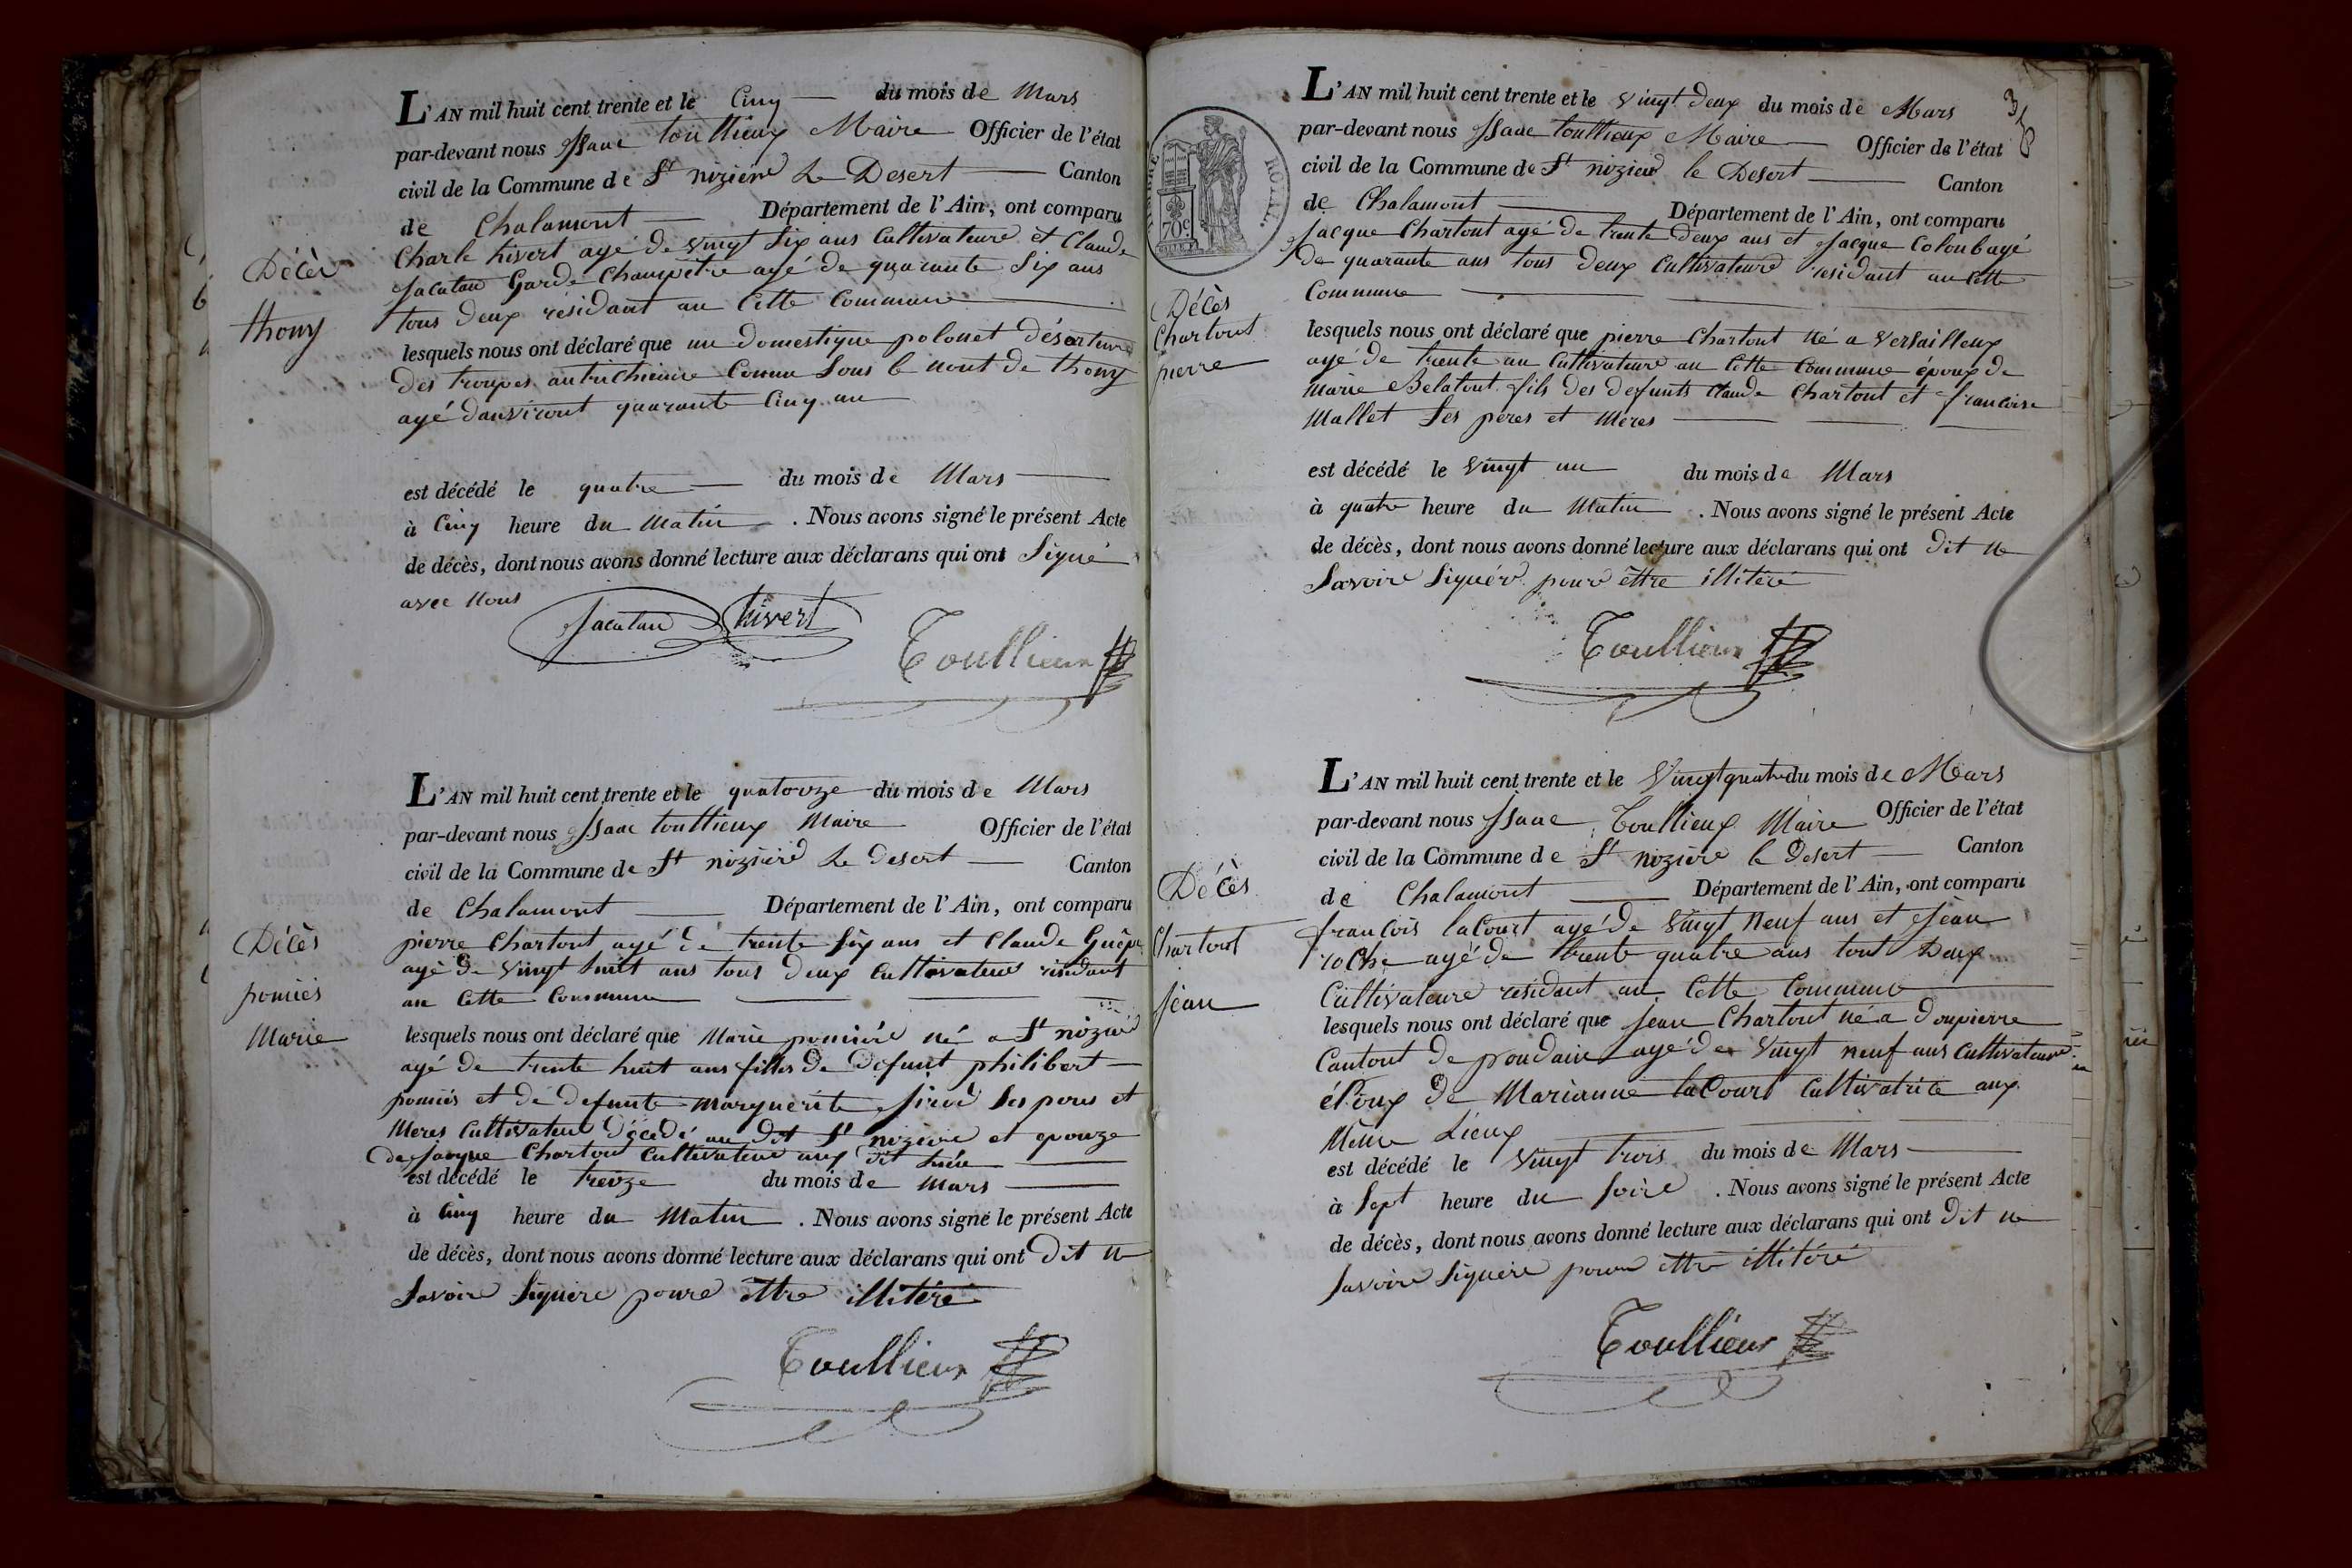 L'AN mil huit cent trente et le Cinq du mois de Mars
par-devant nous Isaac toullieux Maire Officier de l'état
civil de la Commune de St nizière Le Desert Canton
de Chalamont Département de l'Ain, ont comparu
Charle hivert agé de vingt six ans Cultivateure et Claude
Jacutau Garde Champêtre agé de quarante Six ans
tous deux résidant an Cette Commune
Décès
thony
lesquels nous ont déclaré que un domestique polonet déserteure
des troupes autrichienne Connu Sous le nont de thony
agé danviront quarante Cinq an
est décédé le quatre du mois de Mars
à Cinq heure du Matin . Nous avons signé le présent Acte
de décès, dont nous avons donné lecture aux déclarans qui ont Signé
avec Nous
Jacutau hivert
Toullieux
L'AN mil huit cent trente et le quatorze du mois de Mars
par-devant nous Isaac toullieux Maire Officier de l'état
civil de la Commune de St nizière Le desert Canton
de Chalamont Département de l'Ain, ont comparu
Décès
pomiés
Marie
pierre Chartout agé de trente six ans et Claude
agé de vingt huit ans tous deux Cultivateure résidant
an Cette Commune
lesquels nous ont déclaré que Marie pomiére né a St nizié
agé de trente huit ans filles de défunt philibert
pomiés et de defunte Marguerite Sirod Ses peres et
Meres Cultivateur décédé au dit St nizière et epouze
de Jacque Chartou Cultivateure aux dit Lieu
est décédé le treize du mois de Mars
à Cinq heure du Matin . Nous avons signé le présent Acte
de décès, dont nous avons donné lecture aux déclarans qui ont Dit ne
Savoire Signere poure ettre illitéré
Toullieux
36
L'AN mil huit cent trente et le vingt deux du mois de Mars
par-devant nous Isaac toullieux Maire Officier de l'état
civil de la Commune de St nizier le Desert Canton
de Chalamont Département de l'Ain, ont comparu
TIMBRE ROYAL.
70c
Jacque Chartout agé de trente deux ans et Jacque Coloub agé
de quarante ans tous deux Cultivateure residant an Cette
Commune
Décès
Chartout
pierre
lesquels nous ont déclaré que pierre Chartout né a Versailleux
agé de trente an Cultivateure an Cette Commune époux de
Marie Belatout fils des defunts Claude Chartout et francoise
Mallet Ses peres et Meres
est décédé le Vingt un du mois de Mars
à quatre heure du Matin . Nous avons signé le présent Acte
de décès, dont nous avons donné lecture aux déclarans qui ont Dit ne
Savoire Signére poure ettre illitéré
Toullieux
L'AN mil huit cent trente et le Vingt quatre du mois de Mars
par-devant nous Isaac Toullieux Maire Officier de l'état
civil de la Commune de St nizière le Desert Canton
de Chalamont Département de l'Ain, ont comparu
Décès
Chartout
jean
francois laCourt agé de Vingt Neuf ans et Jean
roche agé de trente quatre ans tout Deux
Cultivateure residant an Cette Commune
lesquels nous ont déclaré que jean Chartout né a Dompierre
Cantout de pondain agé de Vingt neuf ans Cultivateure
éPoux de Marianne laCourt Cultivatrice aux
Même Lieux
est décédé le Vingt trois du mois de Mars
à Sept heure du Soire . Nous avons signé le présent Acte
de décès, dont nous avons donné lecture aux déclarans qui ont dit ne
Savoire Signere poure ettre illitéré
Toullieux